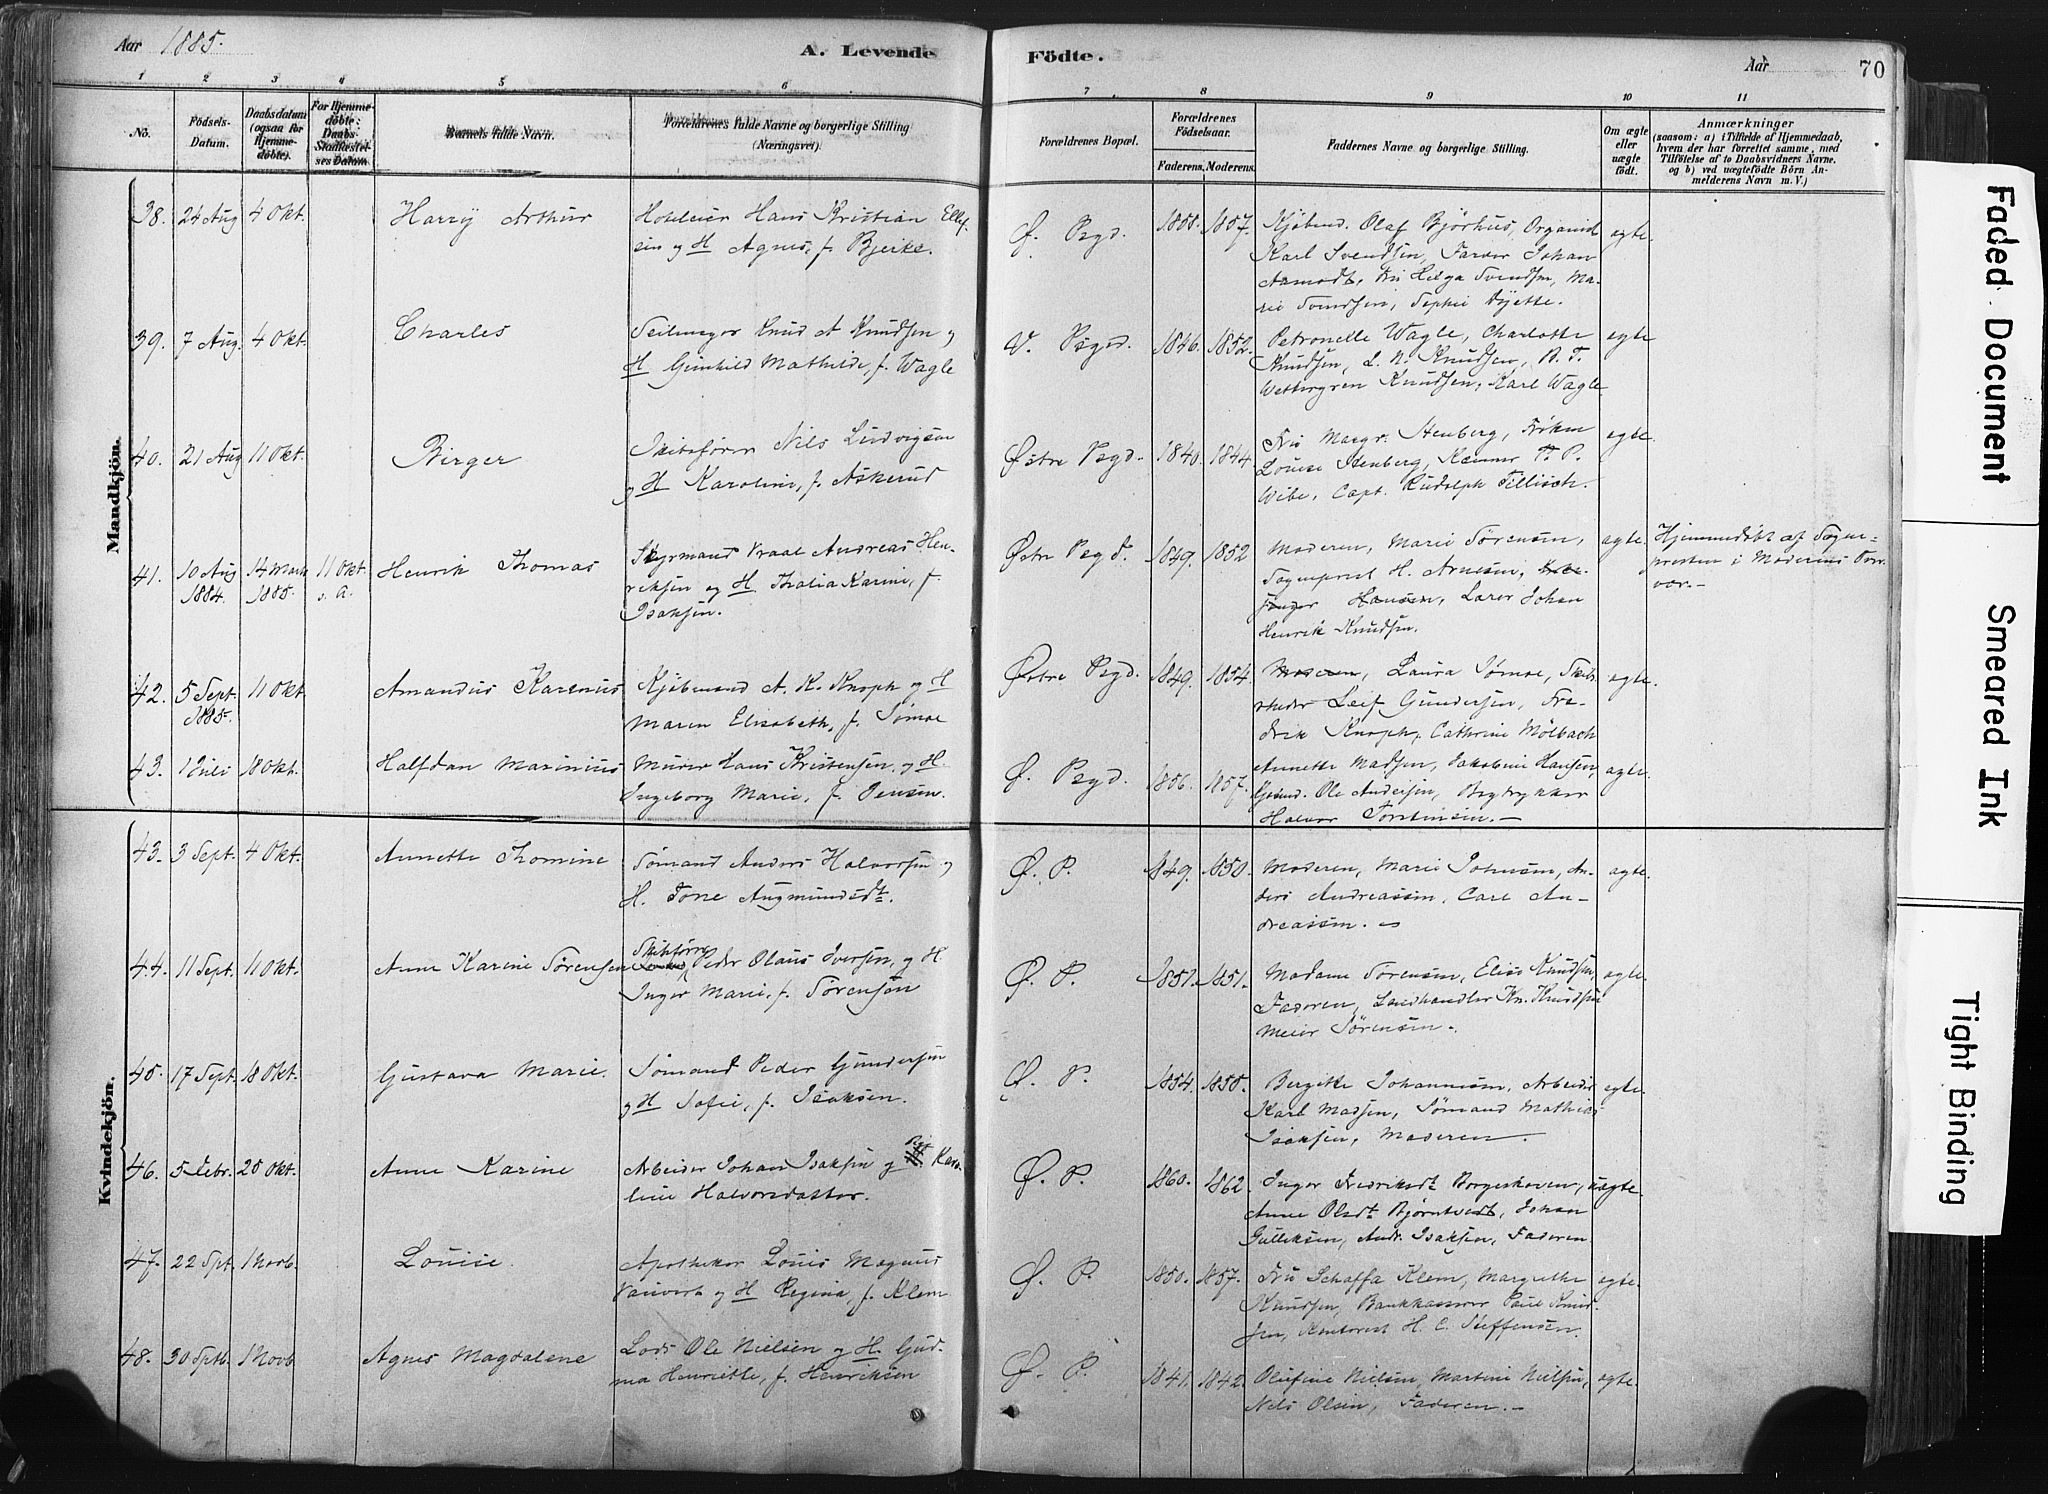 Aar 1885.
A. Levende Födte.
Aar
70
1 2 3 4 5 6 7 8 9 10 11
No.
Födsels-Datum.
Daabsdatum (ogsaa for Hjemme-döbte).
For Hjemme-döbte: Daabs-Stadfæstel-ses Datum
Barnets fulde Navn.
Forældrenes fulde Navne og borgerlige Stilling (Næringsvei).
Forældrenes Bopæl.
Forældrenes Födselsaar.
Faderens. Moderens.
Faddernes Navne og borgerlige Stilling.
Om ægte eller uægte födt.
Anmærkninger
(saasom: a) i Tilfælde af Hjemmedaab, hvem der har forrettet samme, med Tilföielse af to Daabsvidners Navne, og b) ved uægtefödte Börn An-melderens Navn m. V.)
Mandkjön.
38. 24 Aug 4 Okt. Harry Arthur
Hoteleier Hans Kristian Ellef-
sen og H Agnes, f. Bjerke.
Ø. Psgd. 1855. 1857.
Kjøbmd. Olaf Bjørhus, Organist
Karl Svendsen, Farver Johan
Aamodt, Fru Helga Svendsen, Ma-
rie Svendsen, Sophie
ægte.
39. 7 Aug. 4 Okt. Charles
Seilmager Knud A Knudsen og
H Gunhild Mathilde, f. Wagle
V. Psgd. 1846. 1852.
Petronelle Wagle, Charlotte
Knudsen, L. N. Knudsen, B. T.
Wettergren Knudsen, Karl Wagle
ægte
40. 21 Aug 11 Okt. Birger
Skibsfører Nils Ludvigsen
og H Karoline, f. Askerud
Østre Psgd. 1840. 1844
Fru Margr. Stenberg, Frøken
Louise Stenberg, Kæmner P.
Wibe, Capt. Rudolph Tillisch.
ægte.
41. 10 Aug 1884. 14 Marts 1885. 11 Okt. s. A. Henrik Thomas
Styrmand Vraal Andreas Hen-
riksen og H Thalia Karine, f.
Isaksen.
Østre Psgd. 1849. 1852
Moderen, Marie Sørensen,
Sogneprest H. Arnesen,
Hansen, Lærer Johan
Henrik Knudsen.
ægte.
Hjemmedøbt af Sogne-
presten i Moderens Nær-
vær.-
42. 5 Sept. 1885. 11 Okt Amandus Karenus
Kjøbmand A. K. Knoph og H
Maren Elisabeth, f. Sømoe
Østre Psgd. 1849. 1854.
Moderen, Laura Sømoe, Skibs-
rheder Leif Gundersen, Fre-
drik Knoph, Cathrine Mølbach
ægte.
43. 1 Juli 18 Okt. Halfdan Marinius
Murer Hans Kristensen og H.
Ingeborg Marie, f. Jensen.
Ø. Psgd. 1856. 1857.
Annette Madsen, Jakobine Hansen,
Ole Andersen, Bogtrykker
Halvor Torstensen.-
ægte.
Kvindekjön.
43. 3 Sept. 4 Okt. Annette Thomine
Sømand Anders Halvorsen og
H. Tone Augmundsdt.
Ø. P. 1849. 1850.
Moderen, Marie Johnsen, An-
ders Andreassen, Carl An-
dreassen.-
ægte.
44. 11 Sept. 11 Okt. Anne Karine Sørensen
Skibsfører Peder Olaus Iversen, og H
Inger Marie, f. Sørensen
Ø. P. 1851. 1851.
Madame Sørensen, Elise Knudsen,
Faderen, Landhandler Kn. Knudsen
Meier Sørensen.
ægte.
45. 17 Sept. 18 Okt. Gustava Marie.
Sømand Peder Gundersen
og H Sofie, f. Isaksen.
Ø. P. 1854. 1855.
Bergitte Johannesen, Arbeider
Karl Madsen, Sømand Mathias
Isaksen, Moderen.
ægte.
46. 5 Febr. 25 Okt. Anne Karine
Arbeider Johan Isaksen og Pige Karo-
line Halvorsdatter.
Ø. P. 1860. 1862.
Inger Fredriksdt Borgeskoven,
Anne Olsdt Bjørntvedt, Johan
Gulliksen, Andr. Isaksen, Faderen
uægte.
47. 22 Spt. 1 Novb. Louise.
Apotheker Louis Magnus
Vauvert og H Regina, f. Klem
Ø. P. 1850. 1857.
Fru Schaffa Klem, Margrethe
Knudsen, Bankkasserer Paul Knud-
sen, Kontorist H. C. Steffensen.
ægte.
48. 30 Sptb. 1 Novb Agnes Magdalene
Lods Ole Nielsen og H. Gud-
ma Henriette, f. Henriksen
Ø. P. 1841. 1842.
Olufine Nielsen, Martine Nielsen,
Nels Olsen, Faderen.-
ægte.
Faded Document
Smeared Ink
Tight Binding